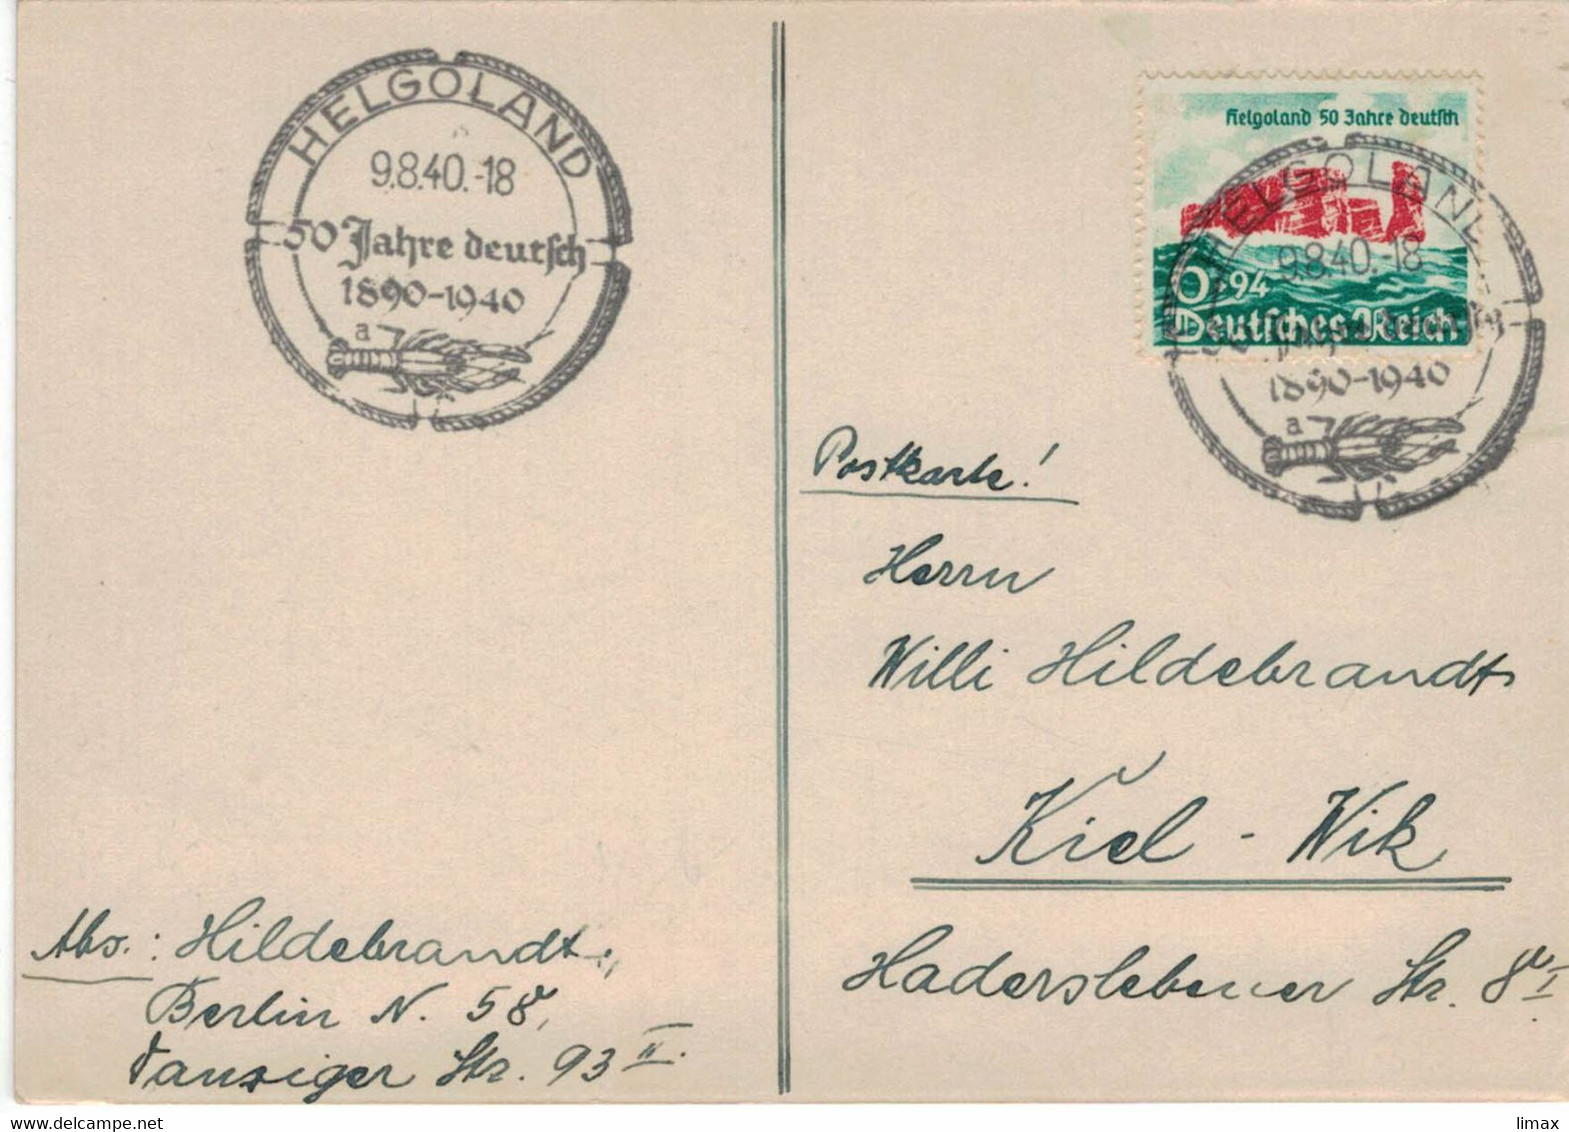 HELGOLAND
9.8.40.-18
50 Jahre deutsch
1890-1940
a
Helgoland 50 Jahre deutsch
6+94
Deutsches Reich
HELGOLAND
9.8.40.-18
50 Jahre deutsch
1890-1940
a
Postkarte!
Herrn
Willi Hildebrandt
Kiel - Wik
Haderslebener Str. 8
Abs.: Hildebrandt,
Berlin N. 58,
Danziger Str. 93 II.
delcampe.net
limax